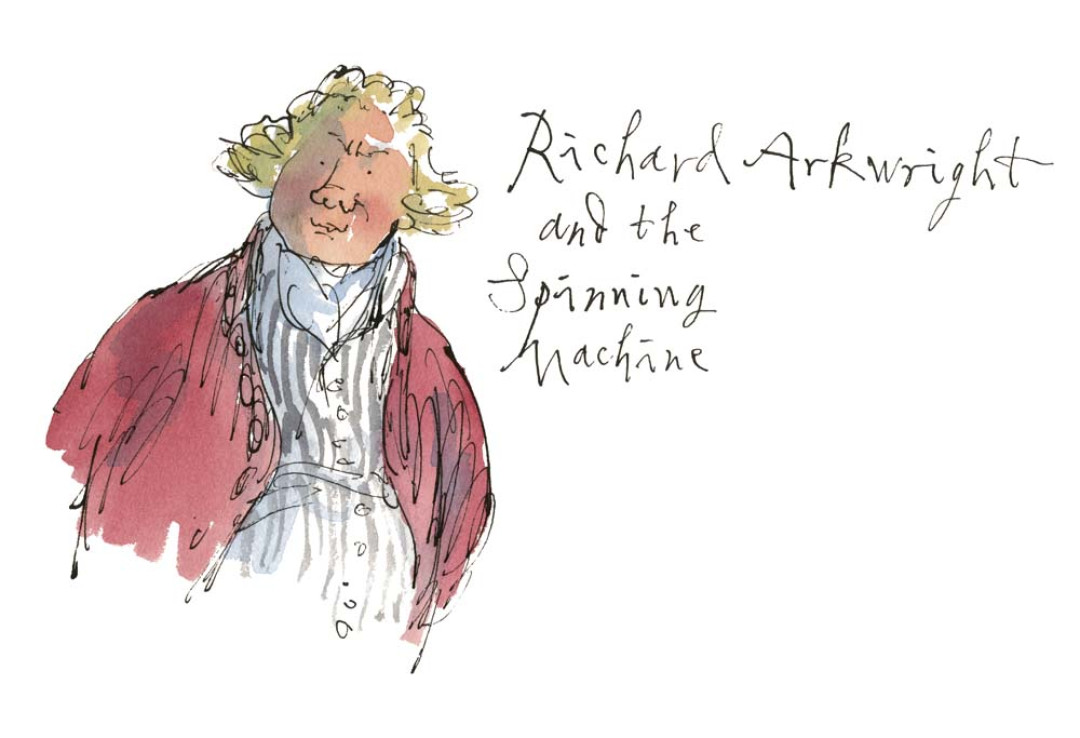 Richard Arkwright
and the
Spinning
Machine